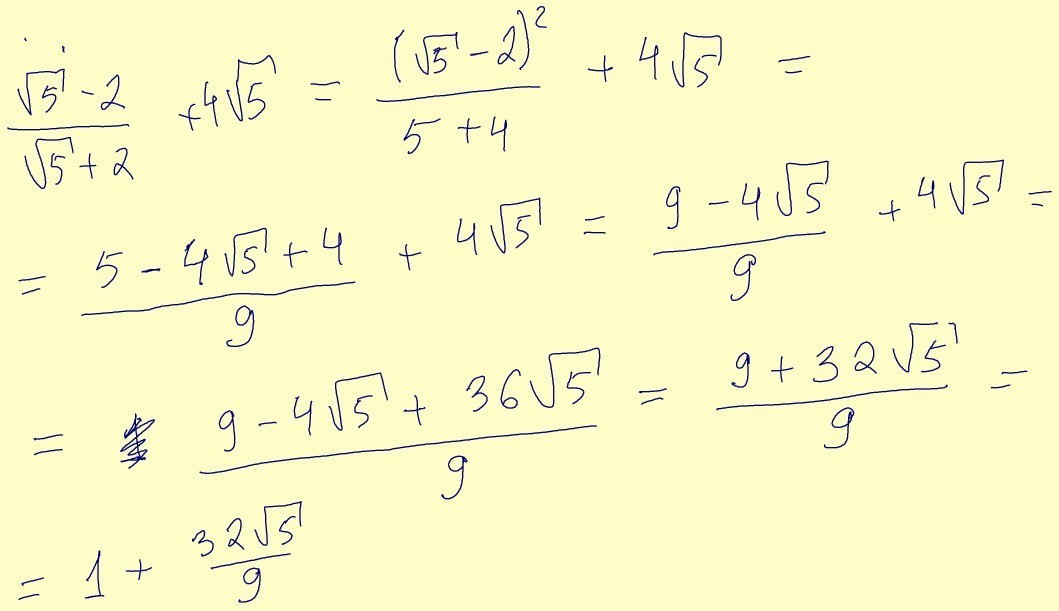 \frac{\sqrt{5}-2}{\sqrt{5}+2} + 4\sqrt{5} = \frac{(\sqrt{5}-2)^2}{5+4} + 4\sqrt{5} =
= \frac{5-4\sqrt{5}+4}{9} + 4\sqrt{5} = \frac{9-4\sqrt{5}}{9} + 4\sqrt{5} =
= \frac{9-4\sqrt{5}+36\sqrt{5}}{9} = \frac{9+32\sqrt{5}}{9} =
= 1 + \frac{32\sqrt{5}}{9}